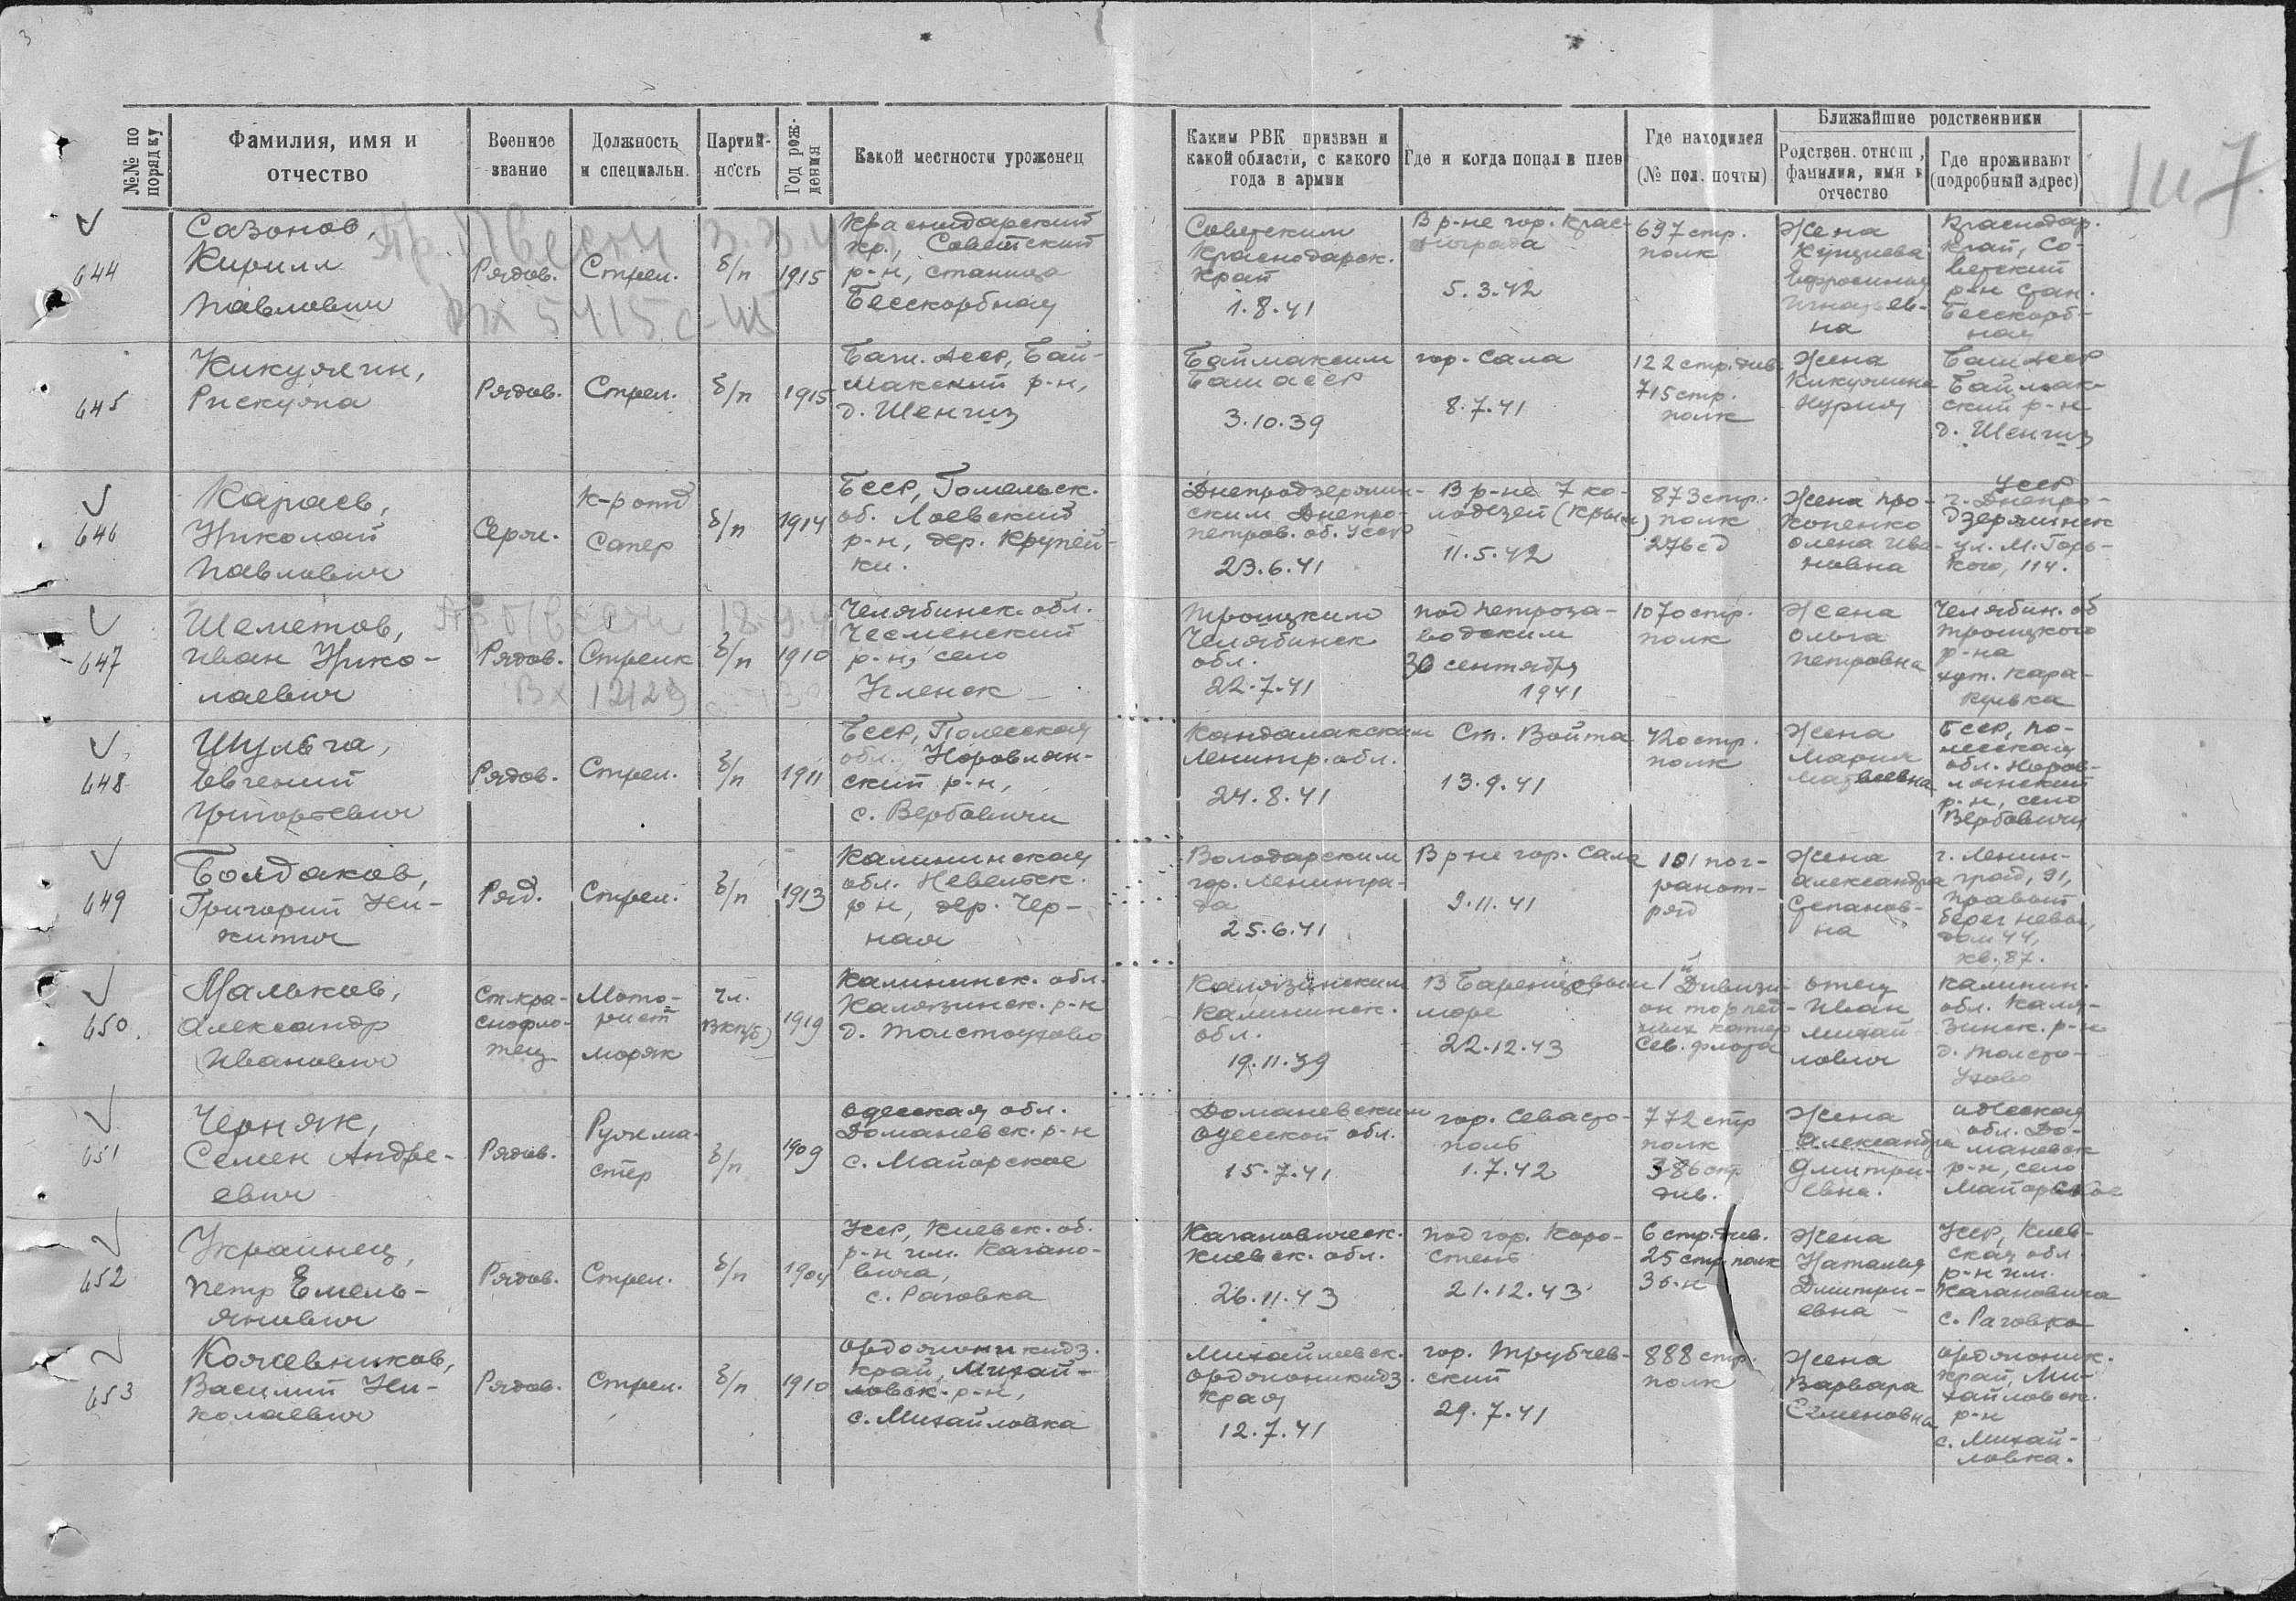 3
№№ по порядку
Фамилия, имя и отчество
Военное звание
Должность и специальн.
Партий-ность
Год рож-дения
Какой местности уроженец
Каким РВК призван и какой области, с какого года в армии
Где и когда попал в плен
Где находился (№ пол. почты)
Ближайшие родственники
Родствен. отнош., фамилия, имя и отчество
Где проживают (подробный адрес)
644
Сазонов,
Кирилл
Павлович
Рядов.
Стрел.
б/п
1915
Краснодарский
кр., Советский
р-н, станица
Бесскорбная
Советским
Краснодарск.
край
1.8.41
В р-не гор. Крас-
нограда
5.3.42
697 стр.
полк
Жена
Ефросиния
Игнатьев-
на
Краснодар.
край, Со-
ветский
р-н стан.
Бесскорб-
ная
Вх 5415с-
645
Кикулягин,
Рискужа
Рядов.
Стрел.
б/п
1915
Баш. АССР, Бай-
макский р-н,
д. Шенгиз
Баймакским
Баш АССР
3.10.39
гор. Сала
8.7.41
122 стр. див.
715 стр.
полк
Жена
Нурия
Баш АССР
Баймак-
ский р-н
д. Шенгиз
646
Караев,
Николай
Павлович
Серж.
К-р отд
Сапер
б/п
1914
БССР, Гомельск.
об. Лоевский
р-н, дер. Крупей-
ки.
Днепродзержин-
ским Днепро-
петров. об. УССР
23.6.41
В р-не 7 ко-
лодезей (Крым)
11.5.42
873 стр.
полк
276 сд
Жена Про-
копенко
Олена Ива-
новна
УССР
г. Днепро-
дзержинск
ул. М. Горь-
кого, 114.
647
Шеметов,
Иван Нико-
лаевич
Рядов.
Стрелк
б/п
1910
Челябинск. обл.
Чесменский
р-н, село
Угленск
Троицким
Челябинск
обл.
22.7.41
под Петроза-
водским
30 сентября
1941
1070 стр.
полк
Жена
Ольга
Петровна
Челябин. об
Троицкого
р-на
хут. Кара-
кулька
Вх 12129
648
Шульга,
Евгений
Григорьевич
Рядов.
Стрел.
б/п
1911
БССР, Полесская
обл., Наровлян-
ский р-н,
с. Вербовичи
Кандалакским
Ленингр. обл.
24.8.41
Ст. Война
13.9.41
420 стр.
полк
Жена
Мария
Матвеевна
БССР, По-
лесская
обл. Наров-
лянский
р-н, село
Вербовичи
649
Болдаков,
Григорий Ни-
китич
Ряд.
Стрел.
б/п
1913
Калининская
обл. Невельск.
р н, дер. Чер-
ная
Володарским
гор. Ленингра-
да
25.6.41
В р-не гор. Сала
9.11.41
101 пог-
ранот-
ряд
Жена
Александра
Степанов-
на
г. Ленин-
град, 91,
Правый
берег Невы,
дом 44,
кв. 87.
650.
Мальков,
Александр
Иванович
Ст. кра-
снофло-
тец
Мото-
рист
моряк
чл.
ВКП(б)
1919
Калининск. обл.
Калязинск. р-н
д. Толстоухово
Калязинским
Калининск.
обл.
19.11.39
В Баренцовым
море
22.12.43
1й Дивизи-
он торпед-
ных катер
Сев. флота
Отец
Иван
Михай-
лович
Калинин.
обл. Каля-
зинск. р-н
д. Толсто-
ухово
651
Черняк,
Семен Андре-
евич
Рядов.
Ружма-
стер
б/п
1909
Одесская обл.
Доманевск. р-н
с. Майорское
Доманевским
Одесской обл.
15.7.41
гор. Севасто-
поль
1.7.42
772 стр
полк
386 стр.
див.
Жена
Александра
Дмитри-
евна.
Одесская
обл. До-
маневск
р-н, село
Майорское
652
Украинец,
Петр Емель-
янович
Рядов.
Стрел.
б/п
1904
УССР, Киевск. об.
р-н им. Кагано-
вича,
с. Раговка
Кагановическ.
Киевск. обл.
26.11.43
под гор. Коро-
стень
21.12.43
6 стр. див.
25 стр. полк
3 б-н
Жена
Наталья
Дмитри-
евна
УССР, Киев-
ская обл
р-н им.
Кагановича
с. Раговка
653
Кожевников,
Василий Ни-
колаевич
Рядов.
Стрел.
б/п
1910
Орджоникидз.
край, Михай-
ловск. р-н,
с. Михайловка
Михайловск.
Орджоникидз.
края
12.7.41
гор. Трубчев-
ский
29.7.41
888 стр.
полк
Жена
Варвара
Семеновна
Орджоник.
край, Ми-
хайловск.
р-н
с. Михай-
ловка.